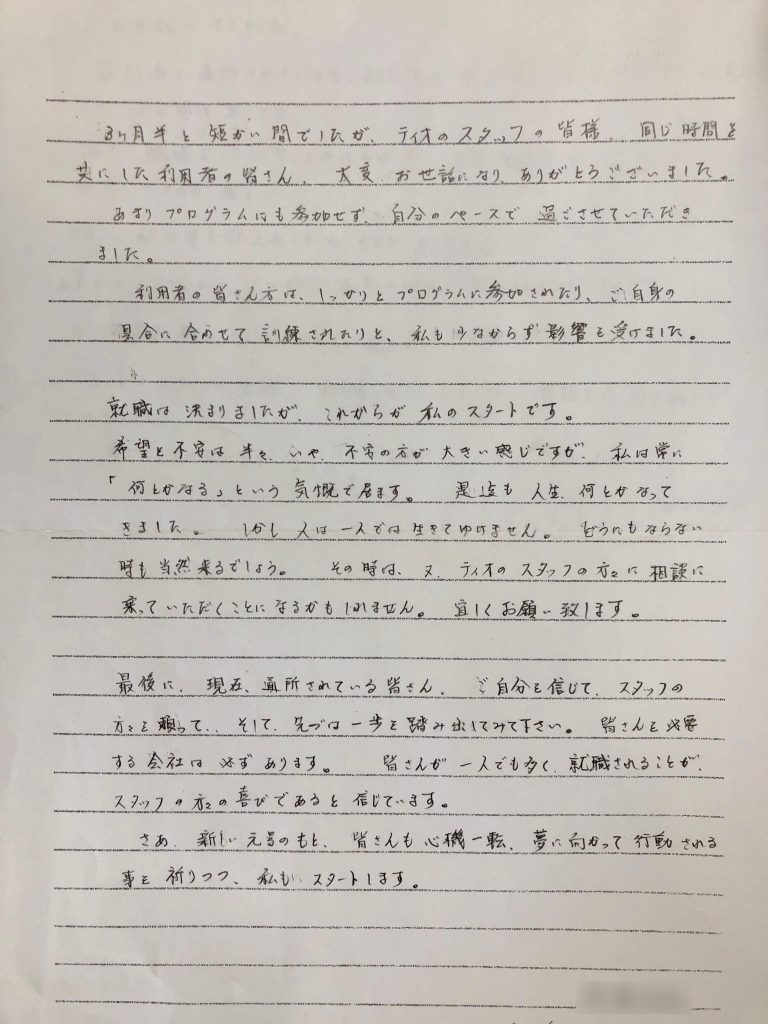 3ヶ月半と短かい間でしたが、ティオのスタッフの皆様、同じ時間を
共にした利用者の皆さん、大変お世話になり、ありがとうございました。
あまりプログラムにも参加せず、自分のペースで過ごさせていただき
ました。
利用者の皆さん方は、しっかりとプログラムに参加されたり、ご自身の
具合に合わせて訓練されたりと、私も少なからず影響を受けました。
就職は決まりましたが、これからが私のスタートです。
希望と不安は半々、いや、不安の方が大きい感じですが、私は常に
「何とかなる」という気概で居ます。 是迄も人生、何とかなって
きました。 しかし人は一人では生きてゆけません。 どうにもならない
時も当然来るでしょう。 その時は、又、ティオのスタッフの方々に相談に
乗っていただくことになるかもしれません。 宜しくお願い致します。
最後に、現在、通所されている皆さん、ご自分を信じて、スタッフの
方々を頼って、、そして、先づは一歩を踏み出してみて下さい。 皆さんを必要
する会社は必ずあります。 皆さんが一人でも多く、就職されることが、
スタッフの方々の喜びであると信じています。
さあ、新しい元号のもと、皆さんも心機一転、夢に向かって行動される
事を祈りつつ、私もスタートします。